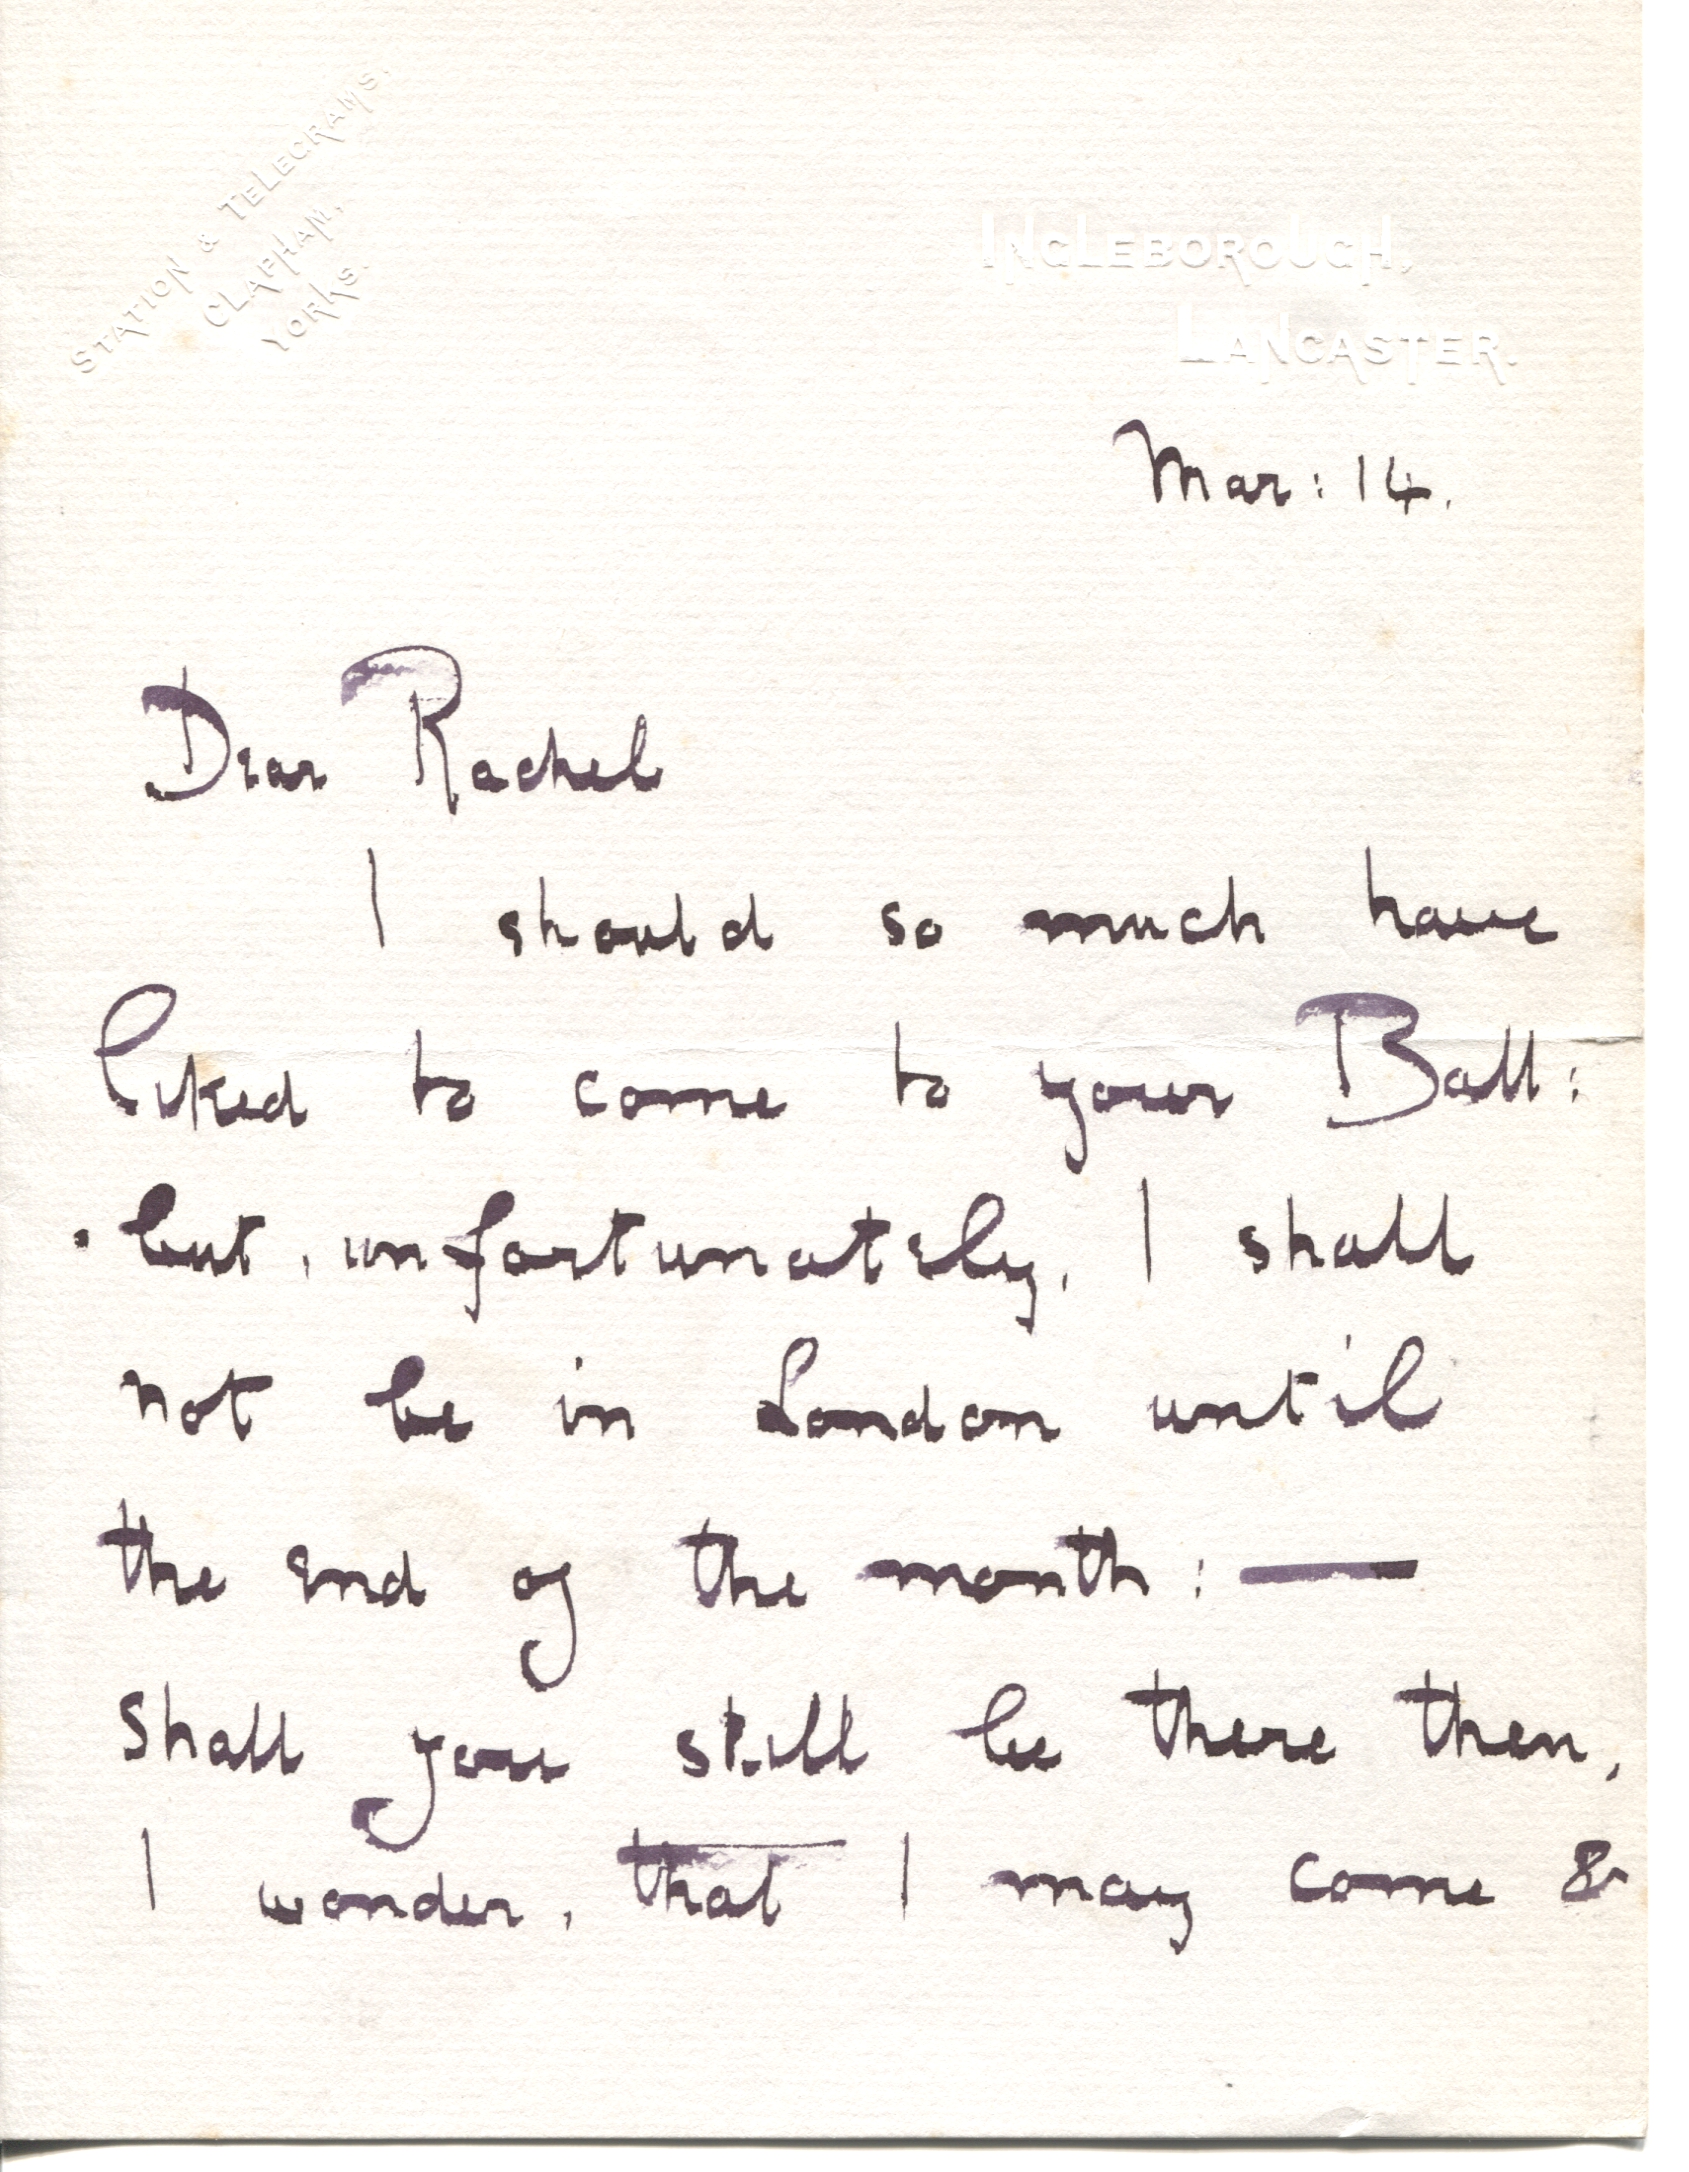 STATION & TELEGRAMS.
CLAPHAM,
YORKS.
INGLEBOROUGH,
LANCASTER.
Mar: 14.
Dear Rachel
I should so much have
liked to come to your Ball:
but, unfortunately, I shall
not be in London until
the end of the month: —
Shall you still be there then,
I wonder, that I may come &